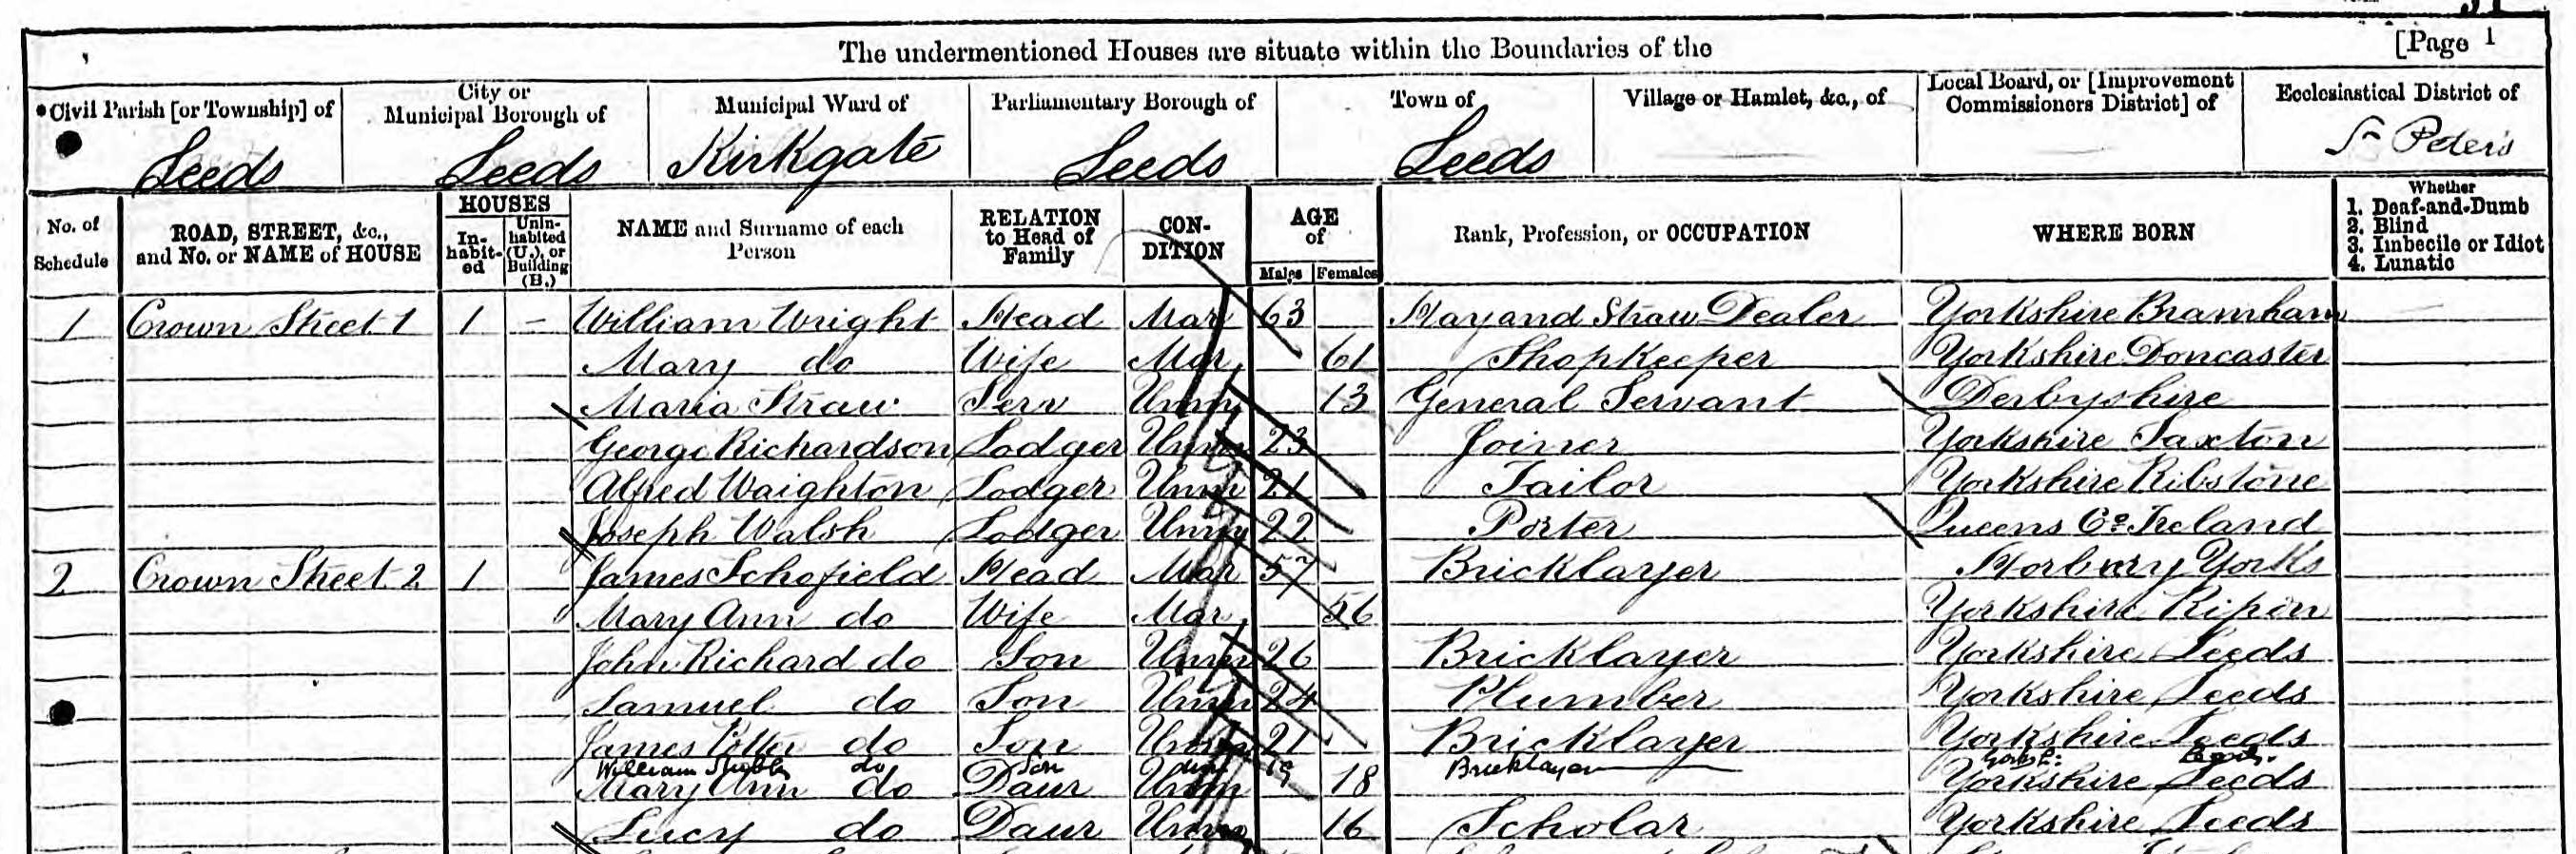 The undermentioned Houses are situate within the Boundaries of the
[Page 1
*Civil Parish [or Township] of
City or Municipal Borough of
Municipal Ward of
Parliamentary Borough of
Town of
Village or Hamlet, &c., of
Local Board, or [Improvement Commissioners District] of
Ecclesiastical District of
Leeds Leeds Kirkgate Leeds Leeds St Peters
No. of Schedule
ROAD, STREET, &c., and No. or NAME of HOUSE
HOUSES
In-habit-ed
Unin-habited (U.), or Building (B.)
NAME and Surname of each Person
RELATION to Head of Family
CON-DITION
AGE of
Males Females
Rank, Profession, or OCCUPATION
WHERE BORN
Whether
1. Deaf-and-Dumb
2. Blind
3. Imbecile or Idiot
4. Lunatic
1 Crown Street 1 1 – William Wright Head Mar 63 Hay and Straw Dealer Yorkshire Bramham
Mary do Wife Mar 61 Shopkeeper Yorkshire Doncaster
Maria Straw Serv Unm 13 General Servant Derbyshire
George Richardson Lodger Unm 23 Joiner Yorkshire Saxton
Alfred Waighton Lodger Unm 21 Tailor Yorkshire Ribstone
Joseph Walsh Lodger Unm 22 Porter Queens Co. Ireland
2 Crown Street 2 1 James Schofield Head Mar 57 Bricklayer Horbury Yorks
Mary Ann do Wife Mar 56 Yorkshire Ripon
John Richard do Son Unm 26 Bricklayer Yorkshire Leeds
Samuel do Son Unm 24 Plumber Yorkshire Leeds
James Potter do Son Unm 21 Bricklayer Yorkshire Leeds
William do Son Unm 19 Bricklayer Leeds
Mary Ann do Daur Unm 18 Yorkshire Leeds
Lucy do Daur Unm 16 Scholar Yorkshire Leeds